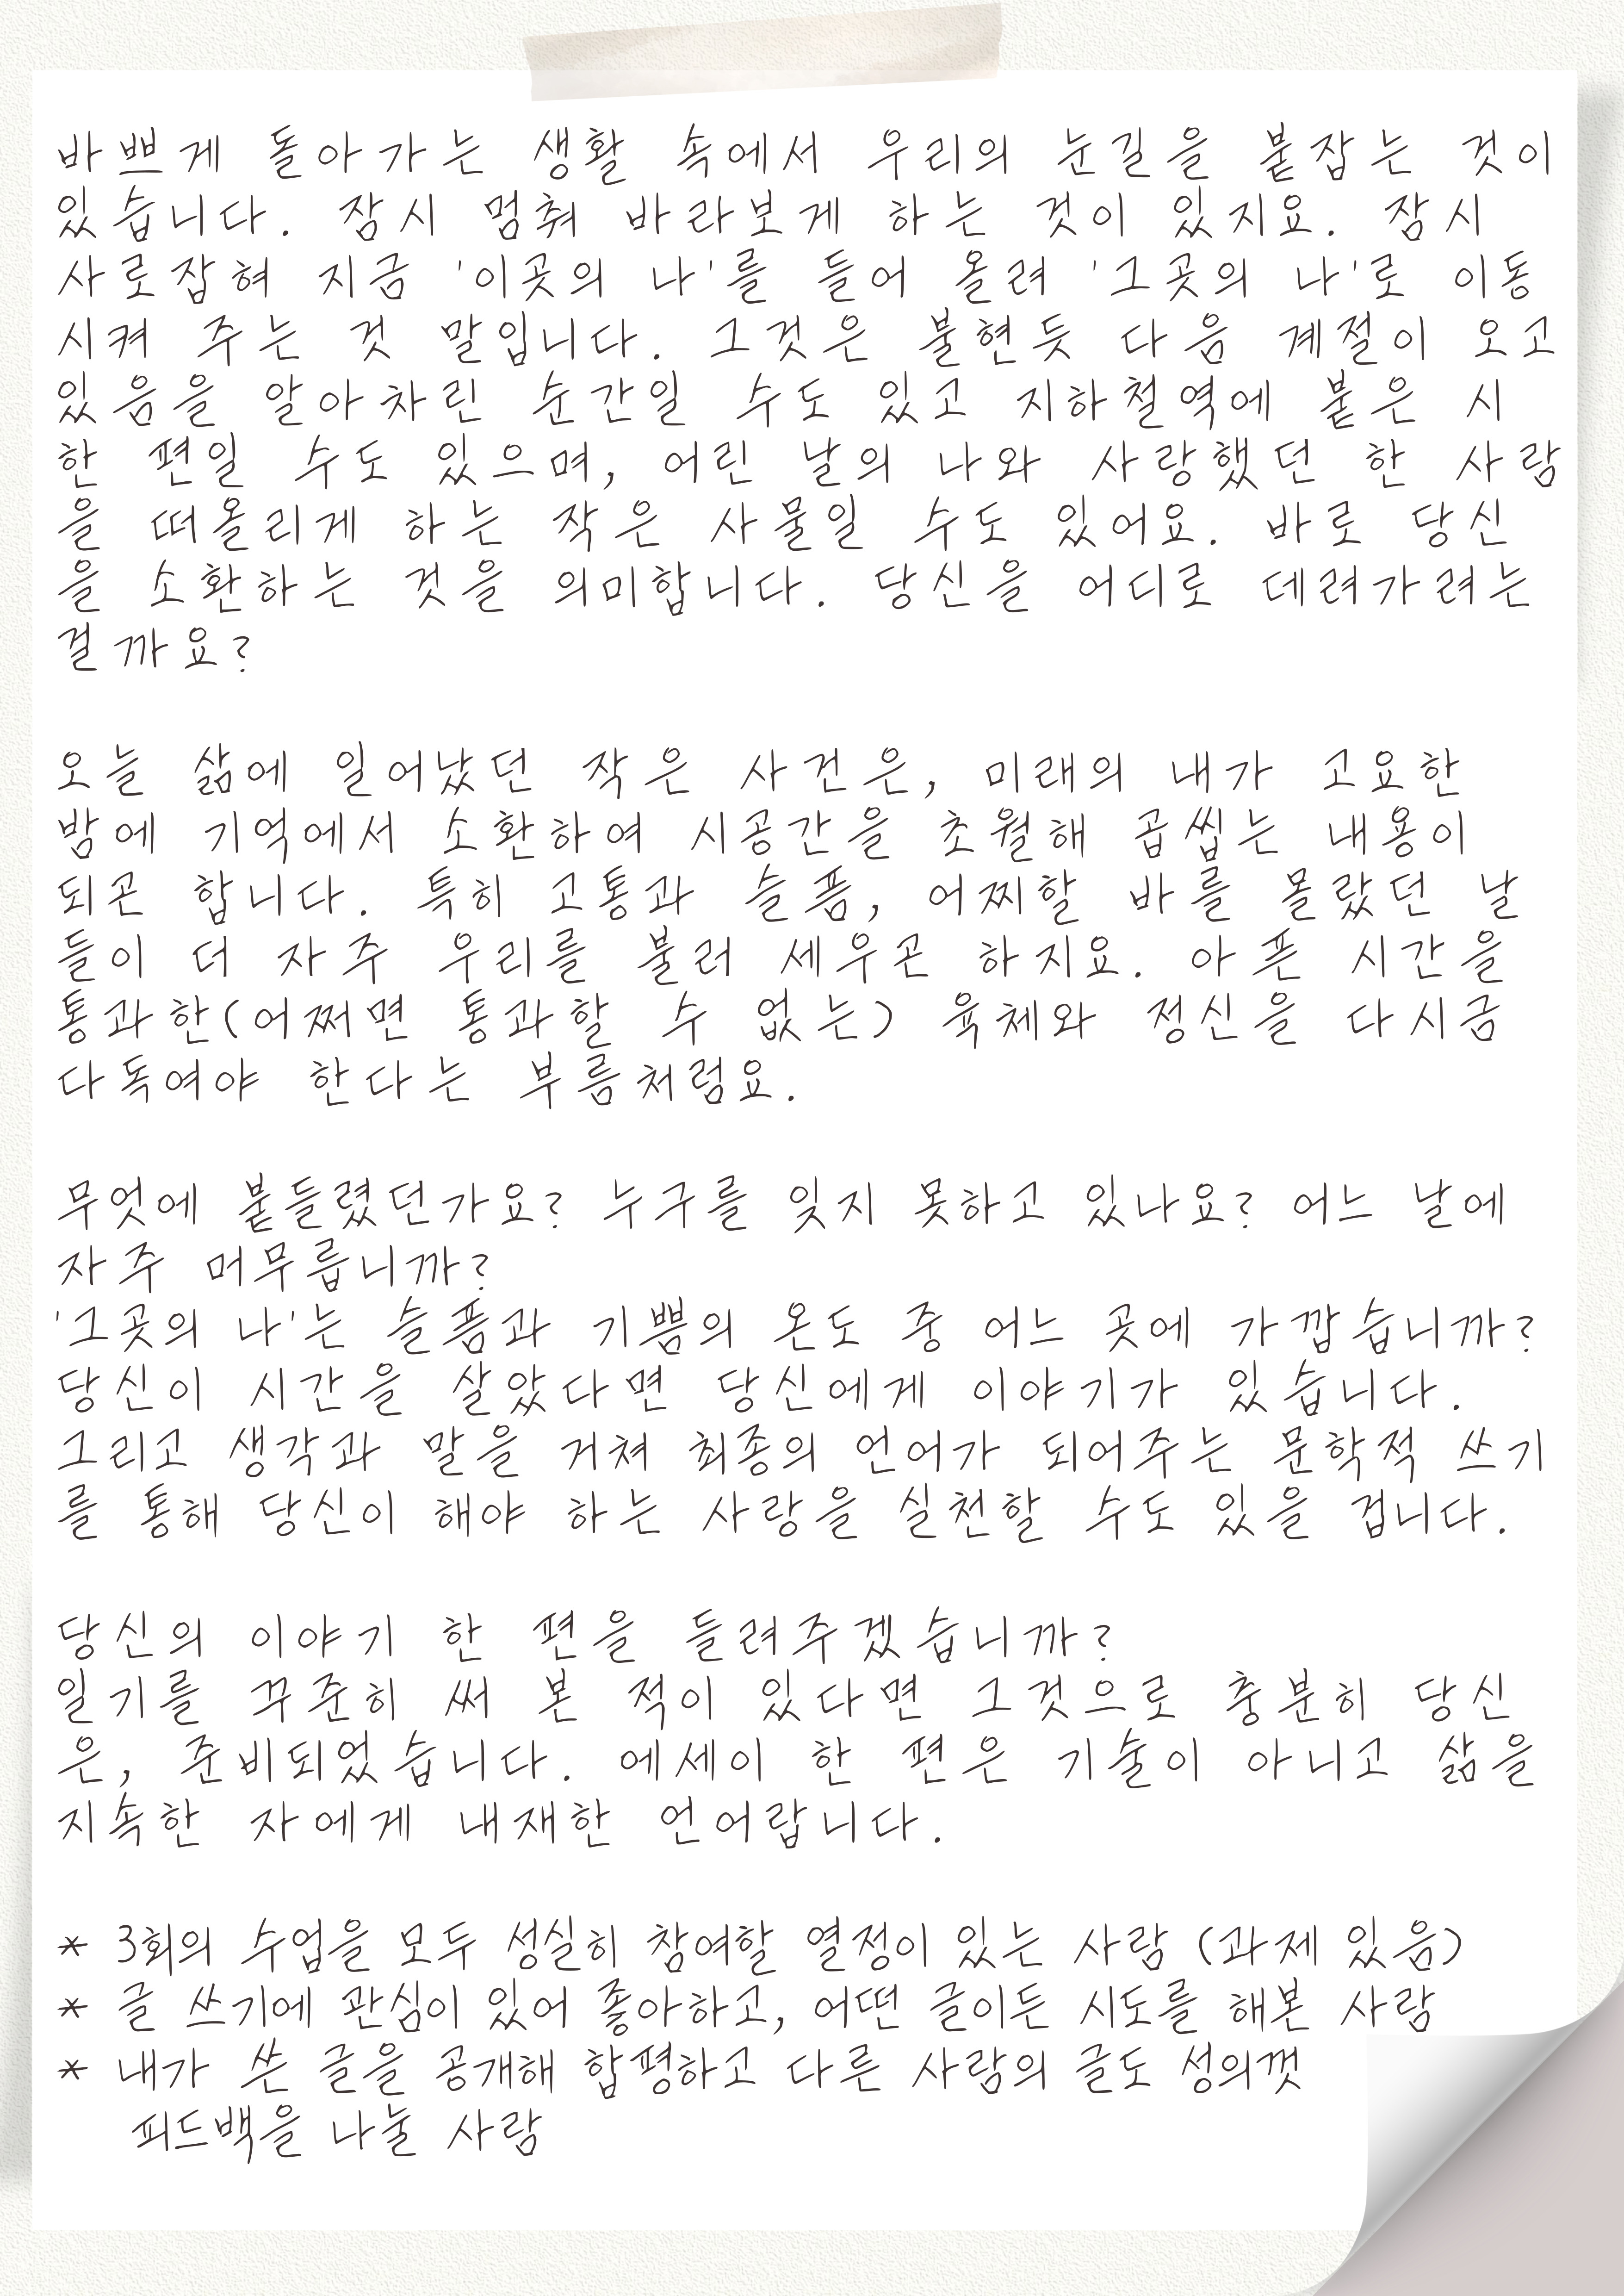 바쁘게 돌아가는 생활 속에서 우리의 눈길을 붙잡는 것이
있습니다. 잠시 멈춰 바라보게 하는 것이 있지요. 잠시
사로잡혀 지금 '이곳의 나'를 들어 올려 '그곳의 나'로 이동
시켜 주는 것 말입니다. 그것은 불현듯 다음 계절이 오고
있음을 알아차린 순간일 수도 있고 지하철역에 붙은 시
한 편일 수도 있으며, 어린 날의 나와 사랑했던 한 사람
을 떠올리게 하는 작은 사물일 수도 있어요. 바로 당신
을 소환하는 것을 의미합니다. 당신을 어디로 데려가려는
걸까요?
오늘 삶에 일어났던 작은 사건은, 미래의 내가 고요한
밤에 기억에서 소환하여 시공간을 초월해 곱씹는 내용이
되곤 합니다. 특히 고통과 슬픔, 어찌할 바를 몰랐던 날
들이 더 자주 우리를 불러 세우곤 하지요. 아픈 시간을
통과한(어쩌면 통과할 수 없는) 육체와 정신을 다시금
다독여야 한다는 부름처럼요.
무엇에 붙들렸던가요? 누구를 잊지 못하고 있나요? 어느 날에
자주 머무릅니까?
'그곳의 나'는 슬픔과 기쁨의 온도 중 어느 곳에 가깝습니까?
당신이 시간을 살았다면 당신에게 이야기가 있습니다.
그리고 생각과 말을 거쳐 최종의 언어가 되어주는 문학적 쓰기
를 통해 당신이 해야 하는 사랑을 실천할 수도 있을 겁니다.
당신의 이야기 한 편을 들려주겠습니까?
일기를 꾸준히 써 본 적이 있다면 그것으로 충분히 당신
은, 준비되었습니다. 에세이 한 편은 기술이 아니고 삶을
지속한 자에게 내재한 언어랍니다.
* 3회의 수업을 모두 성실히 참여할 열정이 있는 사람 (과제 있음)
* 글 쓰기에 관심이 있어 좋아하고, 어떤 글이든 시도를 해본 사람
* 내가 쓴 글을 공개해 합평하고 다른 사람의 글도 성의껏
피드백을 나눌 사람